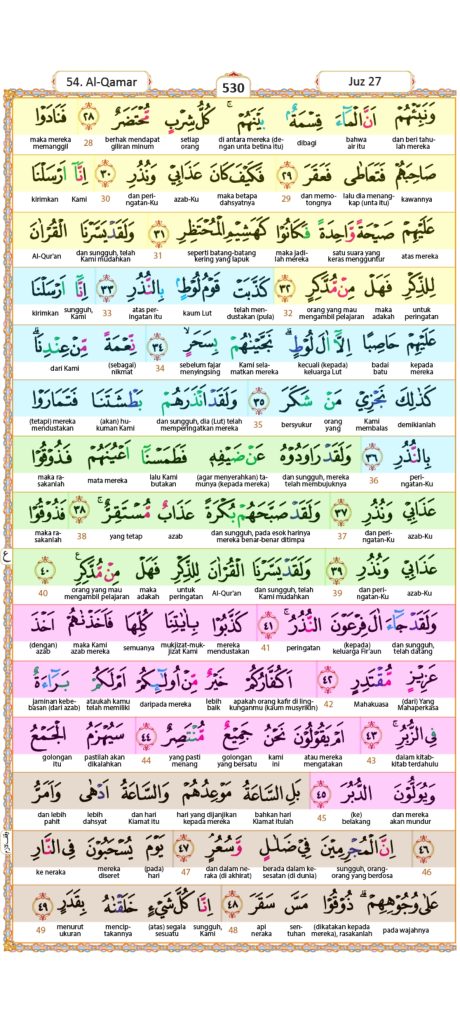 54. Al-Qamar
530
Juz 27
وَنَبِّئْهُمْ اَنَّ الْمَاۤءَ قِسْمَةٌ ۢ بَيْنَهُمْۚ كُلُّ شِرْبٍ مُّحْتَضَرٌ ٢٨ فَنَادَوْا
dan beri tahulah mereka bahwa air itu dibagi di antara mereka (dengan unta betina itu) setiap orang berhak mendapat giliran minum 28 maka mereka memanggil
صَاحِبَهُمْ فَتَعَاطٰى فَعَقَرَ ٢٩ فَكَيْفَ كَانَ عَذَابِيْ وَنُذُرِ ٣٠ اِنَّآ اَرْسَلْنَا
kawannya lalu dia menangkap (unta itu) dan memotongnya 29 maka betapa dahsyatnya azab-Ku dan peringatan-Ku 30 Kami kirimkan
عَلَيْهِمْ صَيْحَةً وَّاحِدَةً فَكَانُوْا كَهَشِيْمِ الْمُحْتَظِرِ ٣١ وَلَقَدْ يَسَّرْنَا الْقُرْاٰنَ
atas mereka satu suara yang keras mengguntur maka jadilah mereka seperti batang-batang kering yang lapuk 31 dan sungguh, telah Kami mudahkan Al-Qur'an
لِلذِّكْرِ فَهَلْ مِنْ مُّدَّكِرٍ ٣٢ كَذَّبَتْ قَوْمُ لُوْطٍ ۢ بِالنُّذُرِ ٣٣ اِنَّآ اَرْسَلْنَا
untuk peringatan maka adakah orang yang mau mengambil pelajaran 32 telah mendustakan (pula) kaum Lut atas peringatan itu 33 sungguh, Kami kirimkan
عَلَيْهِمْ حَاصِبًا اِلَّآ اٰلَ لُوْطٍۗ نَجَّيْنٰهُمْ بِسَحَرٍۙ ٣٤ نِّعْمَةً مِّنْ عِنْدِنَاۗ
kepada mereka badai batu kecuali (kepada) keluarga Lut Kami selamatkan mereka sebelum fajar menyingsing 34 (sebagai) nikmat dari Kami
كَذٰلِكَ نَجْزِيْ مَنْ شَكَرَ ٣٥ وَلَقَدْ اَنْذَرَهُمْ بَطْشَتَنَا فَتَمَارَوْا
demikianlah Kami membalas orang yang bersyukur 35 dan sungguh, dia (Lut) telah memperingatkan mereka (akan) hukuman Kami (tetapi) mereka mendustakan
بِالنُّذُرِ ٣٦ وَلَقَدْ رَاوَدُوْهُ عَنْ ضَيْفِهٖ فَطَمَسْنَآ اَعْيُنَهُمْ فَذُوْقُوْا
peringatan-Ku 36 dan sungguh, mereka telah membujuknya (agar menyerahkan) tamunya (kepada mereka) lalu Kami butakan mata mereka maka rasakanlah
عَذَابِيْ وَنُذُرِ ٣٧ وَلَقَدْ صَبَّحَهُمْ بُكْرَةً عَذَابٌ مُّسْتَقِرٌّۚ ٣٨ فَذُوْقُوْا
azab-Ku dan peringatan-Ku 37 dan sungguh, pada esok harinya mereka benar-benar ditimpa azab yang tetap 38 maka rasakanlah
عَذَابِيْ وَنُذُرِ ٣٩ وَلَقَدْ يَسَّرْنَا الْقُرْاٰنَ لِلذِّكْرِ فَهَلْ مِنْ مُّدَّكِرٍ ࣖ ٤٠
azab-Ku dan peringatan-Ku 39 dan sungguh, telah Kami mudahkan Al-Qur'an untuk peringatan maka adakah orang yang mau mengambil pelajaran 40
وَلَقَدْ جَاۤءَ اٰلَ فِرْعَوْنَ النُّذُرُۚ ٤١ كَذَّبُوْا بِاٰيٰتِنَا كُلِّهَا فَاَخَذْنٰهُمْ اَخْذَ
dan sungguh, telah datang (kepada) keluarga Fir'aun peringatan 41 mereka mendustakan mukjizat-mukjizat Kami semuanya maka Kami azab mereka (dengan) azab
عَزِيْزٍ مُّقْتَدِرٍ ٤٢ اَكُفَّارُكُمْ خَيْرٌ مِّنْ اُولٰۤىِٕكُمْ اَمْ لَكُمْ بَرَاۤءَةٌ
(dari) Yang Mahaperkasa Mahakuasa 42 apakah orang kafir di lingkunganmu (kaum musyrikin) lebih baik daripada mereka ataukah kamu telah memiliki jaminan kebebasan (dari azab)
فِى الزُّبُرِۚ ٤٣ اَمْ يَقُوْلُوْنَ نَحْنُ جَمِيْعٌ مُّنْتَصِرٌ ٤٤ سَيُهْزَمُ الْجَمْعُ
dalam kitab-kitab terdahulu 43 atau mereka mengatakan kami ini golongan yang bersatu yang pasti menang 44 pastilah akan dikalahkan golongan itu
وَيُوَلُّوْنَ الدُّبُرَ ٤٥ بَلِ السَّاعَةُ مَوْعِدُهُمْ وَالسَّاعَةُ اَدْهٰى وَاَمَرُّ
dan mereka akan mundur (ke) belakang 45 bahkan hari Kiamat itulah hari yang dijanjikan kepada mereka dan hari Kiamat itu lebih dahsyat dan lebih pahit
٤٦ اِنَّ الْمُجْرِمِيْنَ فِيْ ضَلٰلٍ وَّسُعُرٍۘ ٤٧ يَوْمَ يُسْحَبُوْنَ فِى النَّارِ
46 sungguh, orang-orang yang berdosa berada dalam kesesatan (di dunia) dan dalam neraka (di akhirat) 47 (pada) hari mereka diseret ke neraka
عَلٰى وُجُوْهِهِمْۗ ذُوْقُوْا مَسَّ سَقَرَ ٤٨ اِنَّا كُلَّ شَيْءٍ خَلَقْنٰهُ بِقَدَرٍ ٤٩
pada wajahnya (dikatakan kepada mereka), rasakanlah sentuhan api neraka 48 sungguh, Kami (atas) segala sesuatu menciptakannya menurut ukuran 49
ع